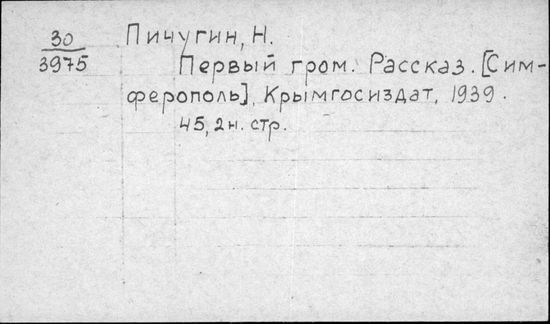 30
3975
Пичугин, Н.
Первый гром. Рассказ. [Сим-
ферополь], Крымгосиздат, 1939.
45, 2н. стр.